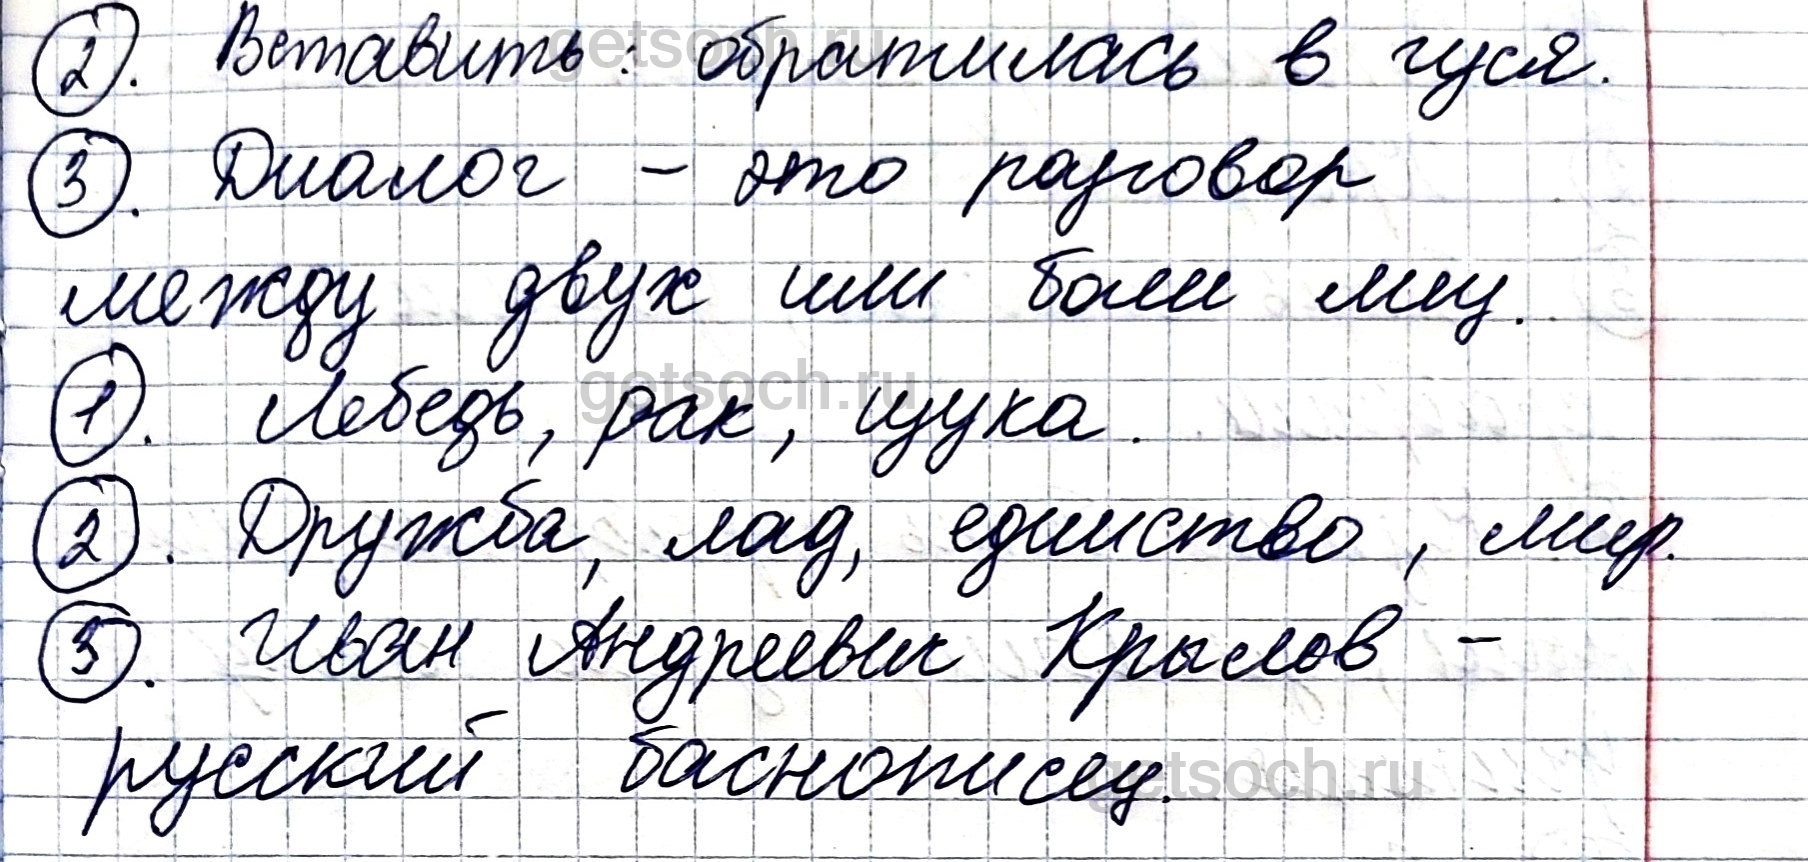 2. Вставить: обратилась в гуся.
3. Диалог – это разговор
между двух или более лиц.
1. Лебедь, рак, щука.
2. Дружба, лад, единство, мир.
3. Иван Андреевич Крылов –
русский баснописец.
getsoch.ru
getsoch.ru
getsoch.ru